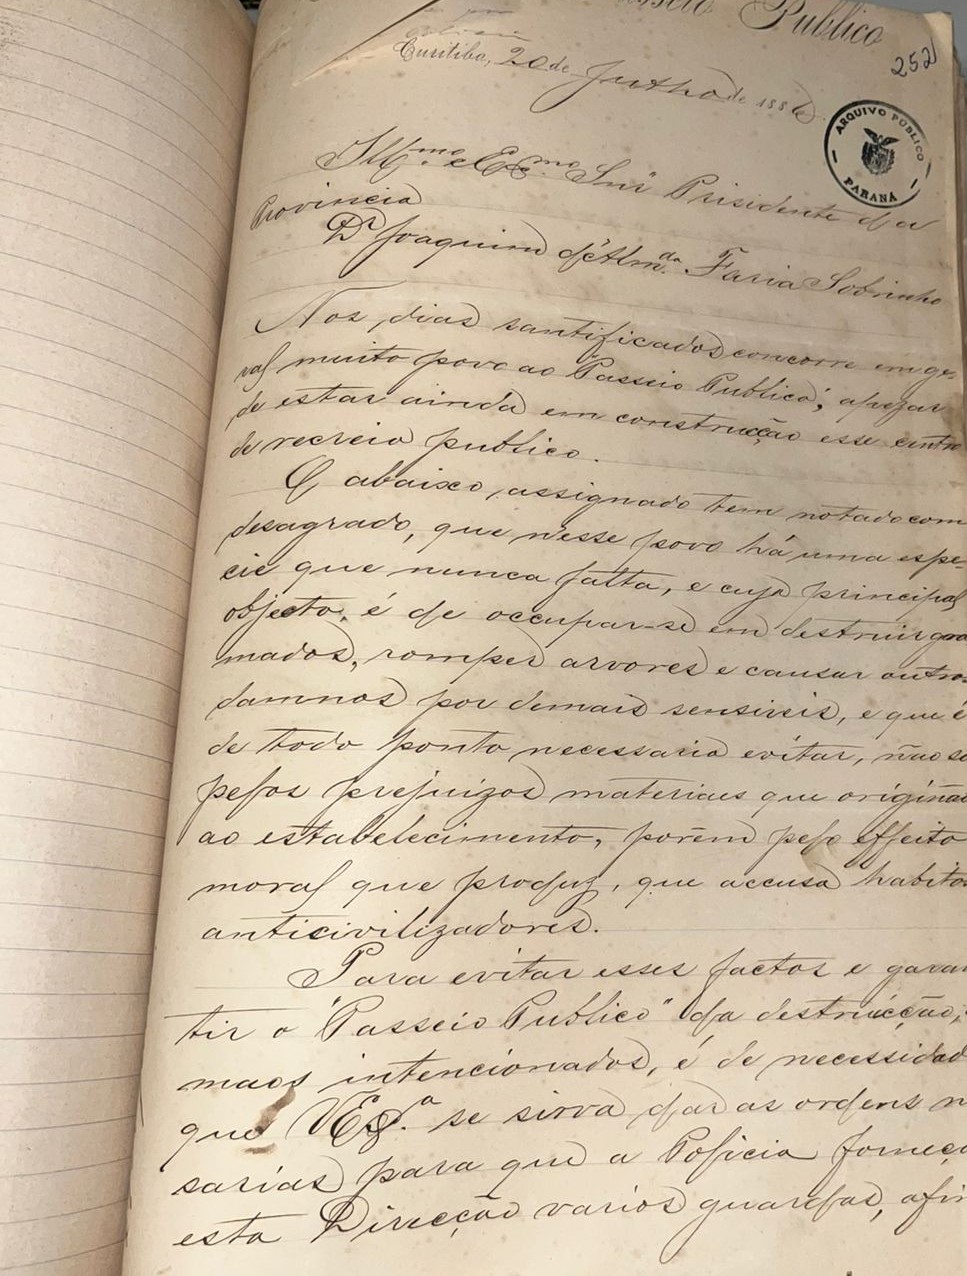 Passeio Publico
252
Curitiba, 20 de Julho de 1886
ARQUIVO PÚBLICO
PARANÁ
Illmo. e Exmo. Snr Prisidente da
Provincia
Dr Joaquim d'Almda. Faria Sobrinho
Nos dias santificados concorre em ge-
ral muito povo ao "Passeio Publico", apezar
de estar ainda em construcção esse centro
de recreio publico.
O abaixo assignado tem notado com
desagrado, que nesse povo há uma espe-
cie que nunca falta, e cujo principal
objecto, é de occupar-se em destruir gra
mados, romper arvores e causar outros
damnos por demais sensiveis, e que é
de todo ponto necessario evitar, não só
pelos prejuizos materiaes que origina
ao estabelecimento, porém pelo effeito
moral que produz, que accusa habitos
anticivilizadores.
Para evitar esses factos e garan
tir o "Passeio Publico" da destrucção,
maos intencionados, é de necessidad
que VExa. se sirva dar as ordens n
sarias para que a Policia forneça
esta Direcção varios guardas, afin